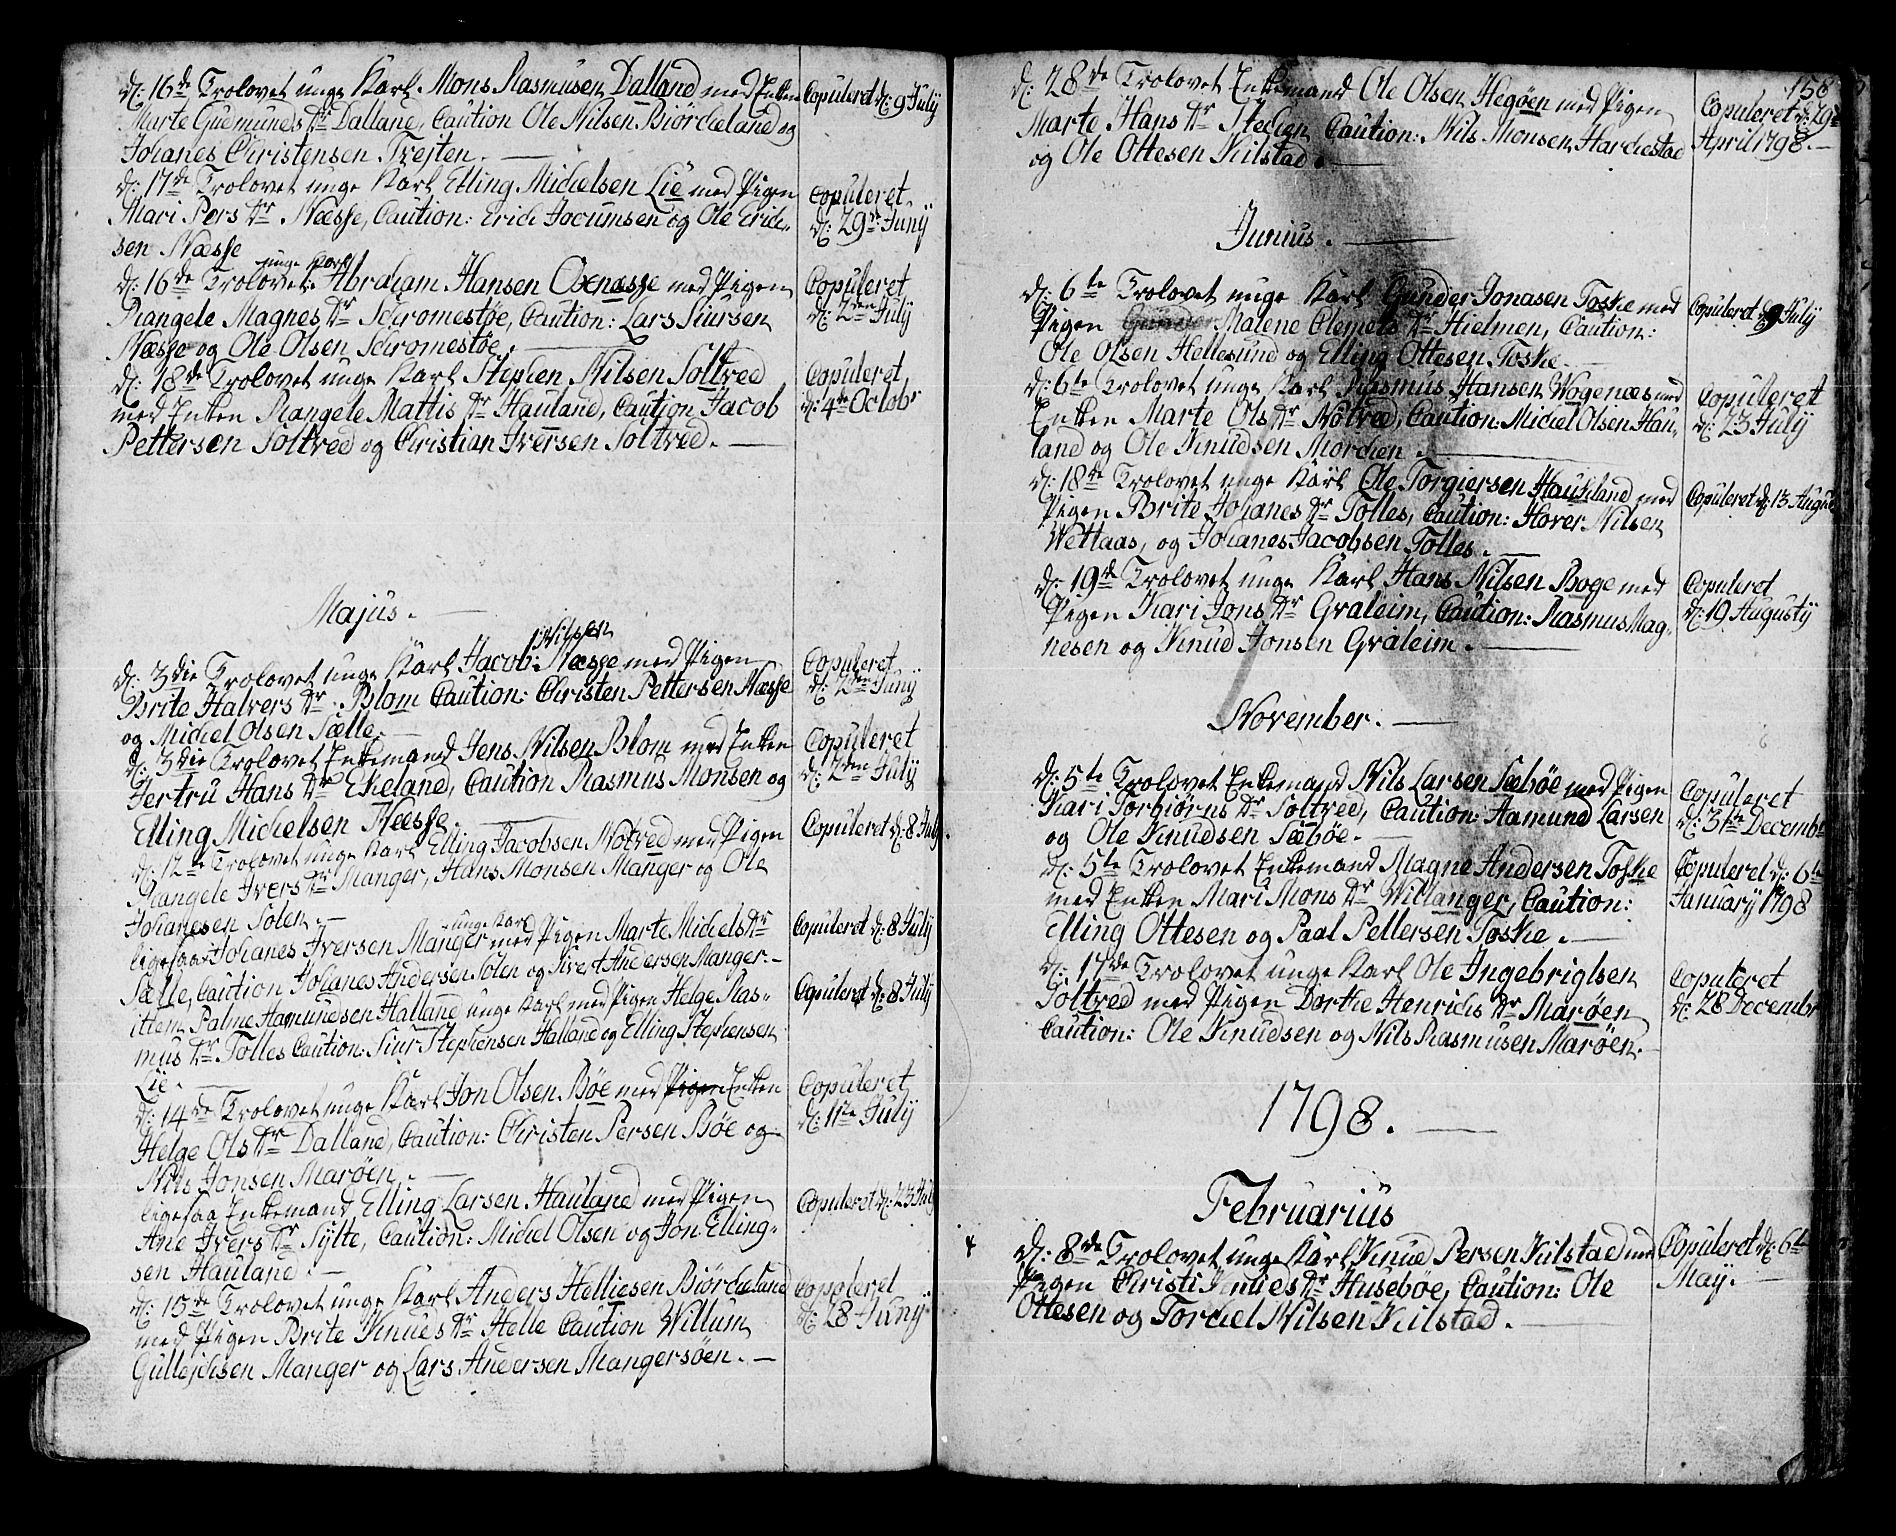 d: 16de Trolovet unge Karl Mons Rasmusen Dalland med Enken
Marte Gudmunds Dr Dalland, Caution Ole Nilsen Biördeland og
Johanes Christensen Trejten.
Copuleret d: 9 Julÿ
d: 17de Trolovet unge Karl Elling Michelsen Lie med Pigen
Mari Pers Dr Næsse, Caution: Erich Jocumsen og Ole Erich-
sen Næsse
Copuleret
d: 29de Junÿ
unge Karl
d: 16de Trolovet Abraham Hansen Oxnæsse med Pigen
Rangele Magnes Dr Schromestøe, Caution: Lars Siursen
Næsse og Ole Olsen Schromestøe.
Copuleret
d: 2den Julÿ
d: 18de Trolovet unge Karl Stephen Nilsen Soltved
med Enken Rangele Mattis Dr Hauland, Caution Jacob
Pettersen Soltved og Christian Iversen Soltved.
Copuleret
d: 4de Octobr
Majus.
Nilssen
d: 3die Trolovet unge Karl Jacob: Næsse med Pigen
Brite Halvers Dr: Blom Caution: Christen Pettersen Næsse
og Michel Olsen Sælle.
Copuleret
d: 2den Junÿ
d: 3die Trolovet Enkemand Jens Nilsen Blom med Enken
Jertru Hans Dr Ekeland, Caution Rasmus Monsen og
Elling Michelsen Næsse.
Copuleret
d: 2den Julÿ
d: 12te Trolovet unge Karl Elling Jacobsen Nøtved med Pigen
Rangele Ivers Dr Manger, Hans Monsen Manger og Ole
Johanesen Solen.
Copuleret d: 8 Julÿ.
unge Karl
ligesaa Johanes Iversen Manger med Pigen Marte Michels Dr
Sælle, Caution Johanes Andersen Solen og Sivert Andersen Manger.
Copuleret d: 8 Julÿ
ittem Palme Hamundsen Halland unge Karl med Pigen Helge Ras-
mus Dr Tolles Caution: Siur Stephensen Halland og Elling Stephensen
Lie.
Copuleret d: 8 Julÿ
d: 14de Trolovet unge Karl Jon Olsen Bøe med Pigen Enken
Helge Ols Dr Dalland, Caution: Christen Persen Bøe og
Nils Jonsen Marøen.
Copuleret
d: 11te Julÿ
ligesaa Enkemand Elling Larsen Hauland med Pigen
Ane Ivers Dr Sylte, Caution: Michel Olsen og Jon Elling-
sen Hauland.
Copuleret d: 23 Julÿ
d: 15de Trolovet unge Karl Anders Helliesen Biördeland
med Pigen Brite Knues Dr Helle Caution Willum
Gullejchsen Manger og Lars Andersen Mangersöen.
Copuleret
d: 28 Junÿ
158
d: 28de Trolovet Enkemand Ole Olsen Hegøen med Pigen
Marte Hans Dr Caution: Nils Monsen Hardestad
og Ole Ottesen Kilstad.
Copuleret d: 29de
April 1798.
Junius.
d: 6te Trolovet unge Karl Gunder Jonasen Toske med
Pigen Malene Clemets Dr Hielmen, Caution:
Ole Olsen Hellesund og Elling Ottesen Toske.
Copuleret d 9 Julÿ
d: 6te Trolovet unge Karl Rasmus Hansen Wogenæs med
Enken Marte Ols Dr Nøtved, Caution: Michel Olsen Hau-
land og Ole Knudsen Mordien.
Copuleret
d: 23 Julÿ
d: 18de Trolovet unge Karl Ole Torgiersen Haukland med
Pigen Brite Johanes Dr Tolles, Caution: Hover Nilsen
Wettaas, og Johanes Jacobsen Tolles.
Copuleret d: 13 August
d: 19de Trolovet unge Karl Hans Nilsen Boge med
Pigen Kari Jons Dr Graleim, Caution: Rasmus Mag-
nesen og Knud Jonsen Graleim.
Copuleret
d: 19 Augustÿ
November.
d: 5te Trolovet Enkemand Nils Larsen Sæbøe med Pigen
Kari Torbiørns Dr Soltved, Caution: Hamund Larsen
og Ole Knudsen Sæbøe.
Copuleret
d: 31te Decembr
d: 5te Trolovet Enkemand Magne Andersen Toske
med Enken Mari Mons Dr Willanger, Caution:
Elling Ottesen og Paal Pettersen Toske.
Copuleret d: 6te
Januarÿ 1798
d: 17de Trolovet unge Karl Ole Ingebrigtsen
Soltved med Pigen Dorthe Henrichs Dr Marøen
Caution: Ole Knudsen og Nils Rasmusen Marøen.
Copuleret
d: 28 Decembr
1798.
Februarius
d: 8de Trolovet unge Karl Knud Persen Kilstad med
Pigen Christi Knues Dr Husebøe, Caution: Ole
Ottesen og Torchel Nilsen Kilstad.
Copuleret d: 6te
Maÿ.